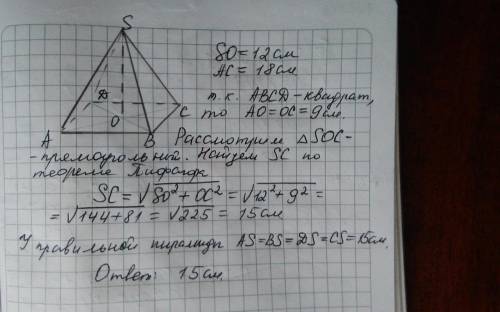 S
D
C
O
A
B
SO = 12 см
AC = 18 см
т.к. ABCD - квадрат,
то AO = OC = 9 см.
Рассмотрим △SOC -
- прямоугольный. Найдем SC по
теореме Пифагора
SC = √SO² + OC² = √12² + 9² =
= √144 + 81 = √225 = 15 см
У правильной пирамиды AS = BS = DS = CS = 15 см.
Ответ: 15 см.